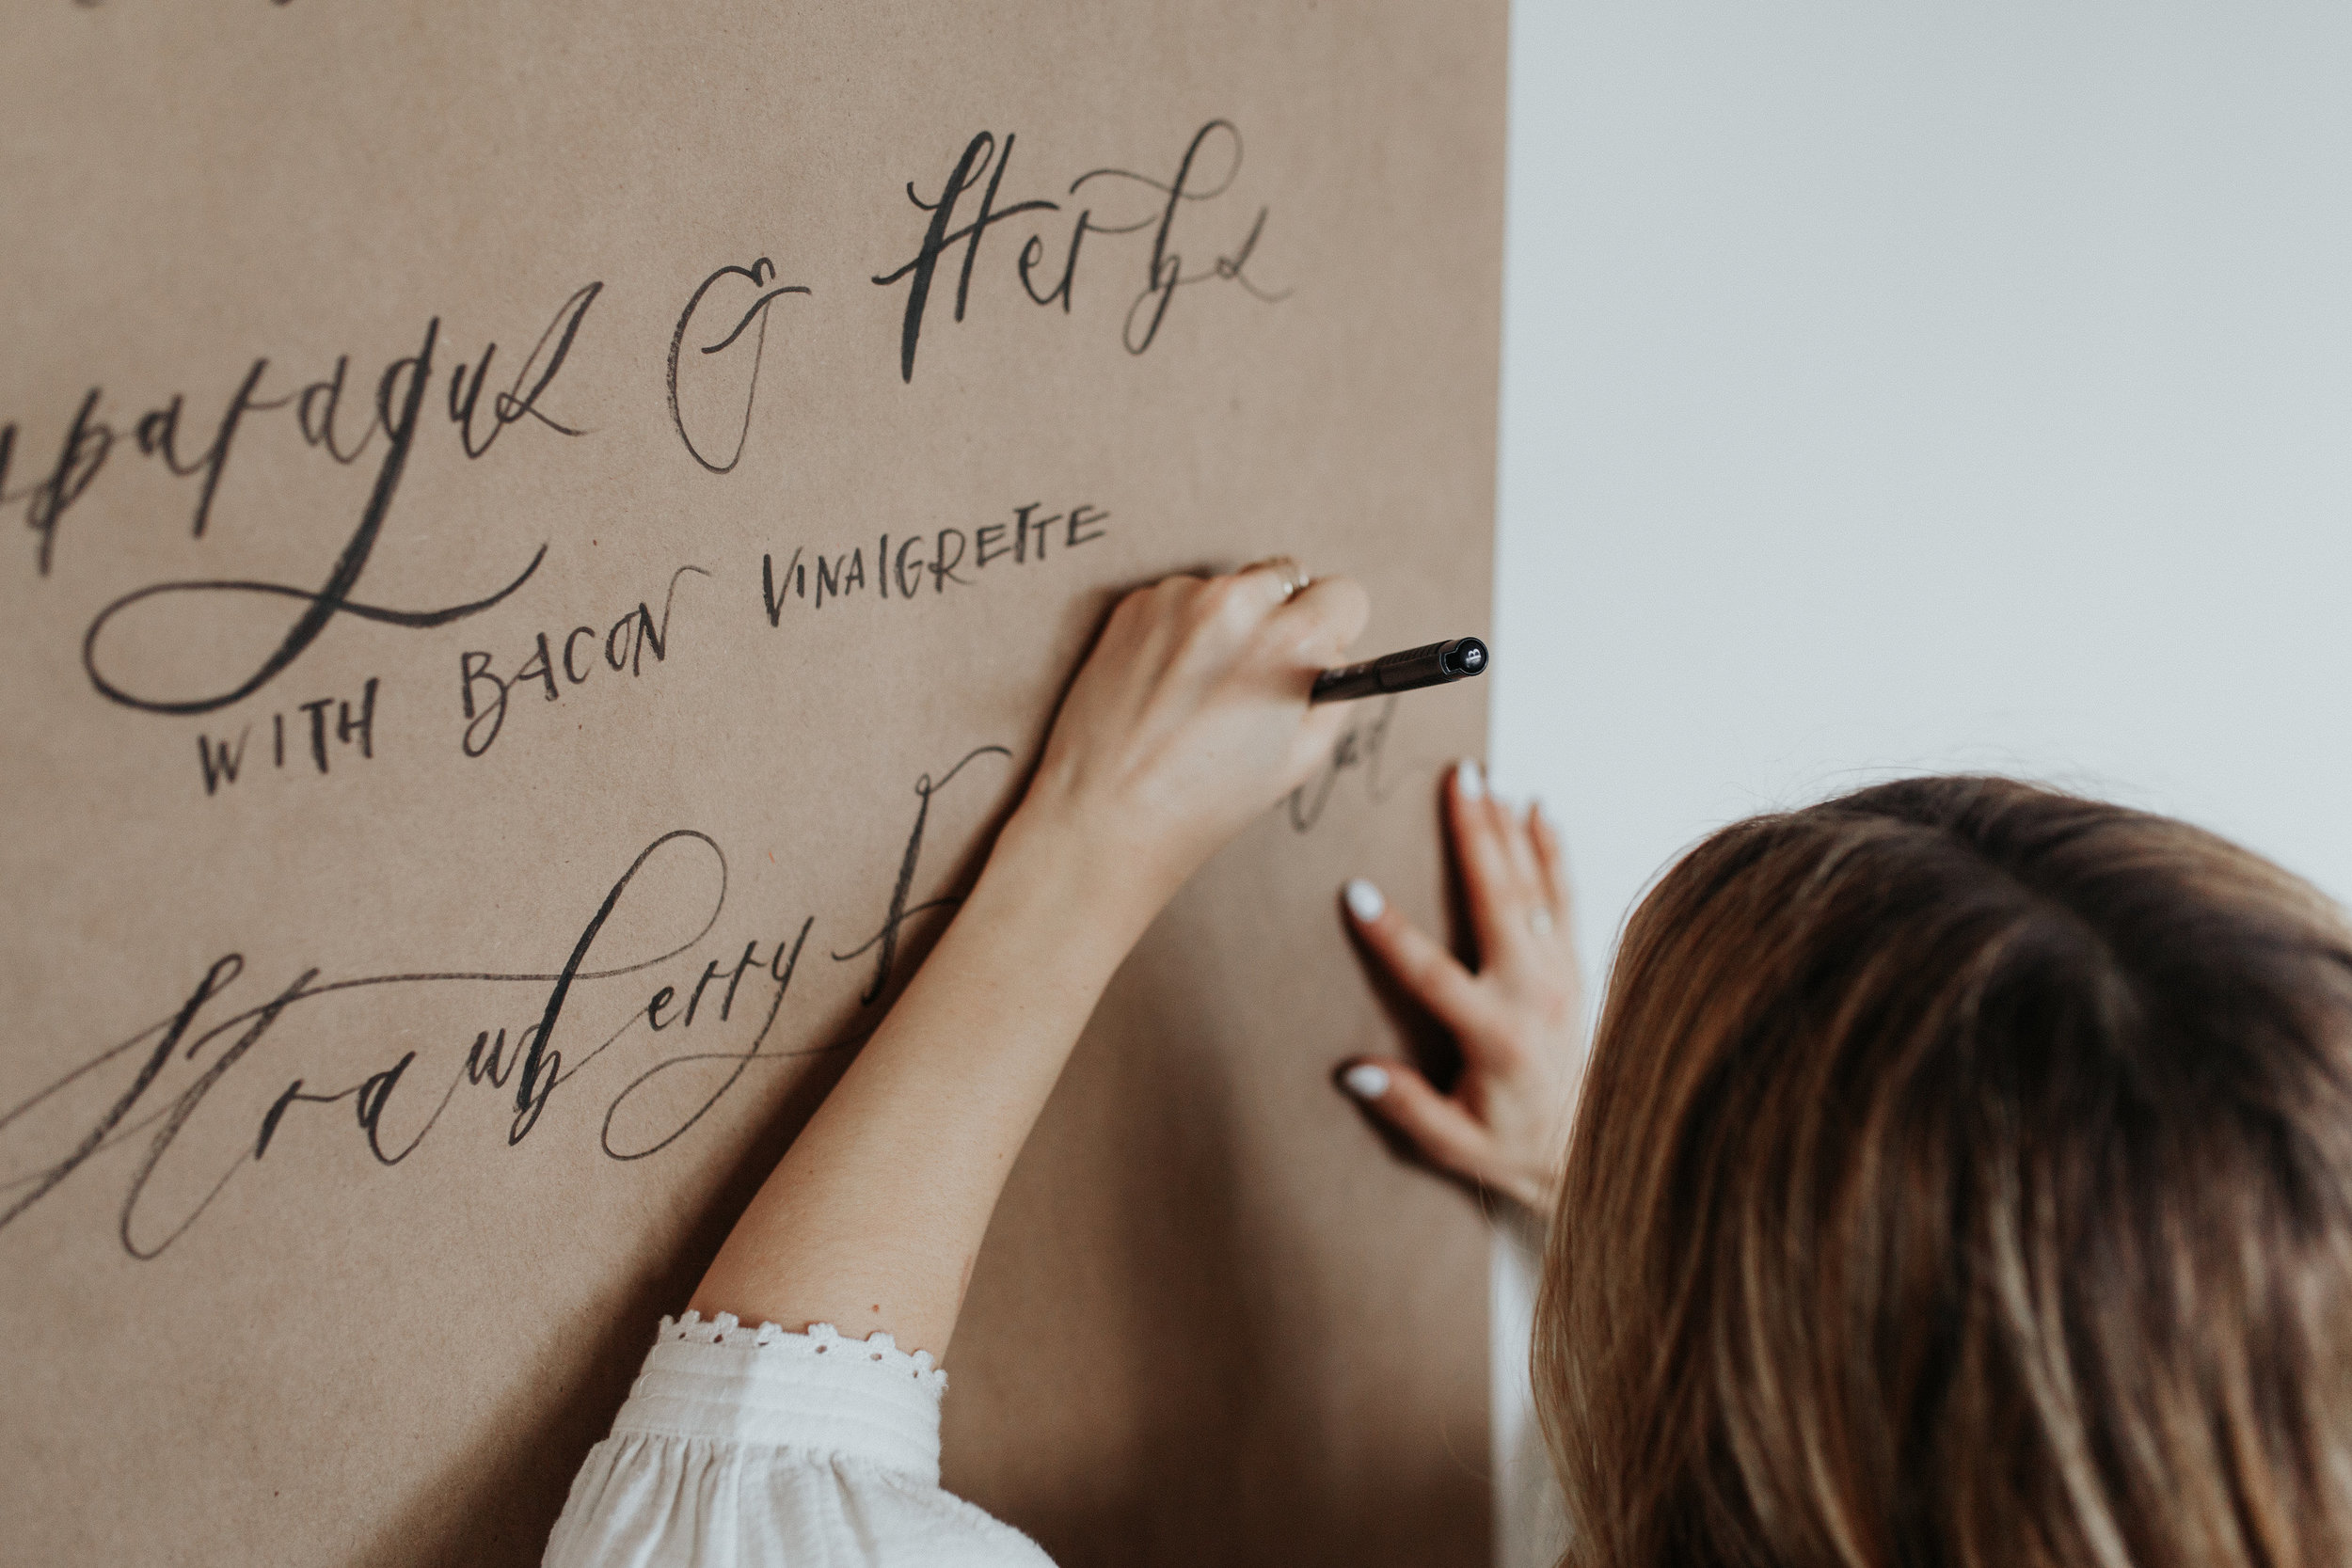 sparagus & Herbs
WITH BACON VINAIGRETTE
Strawberry
B